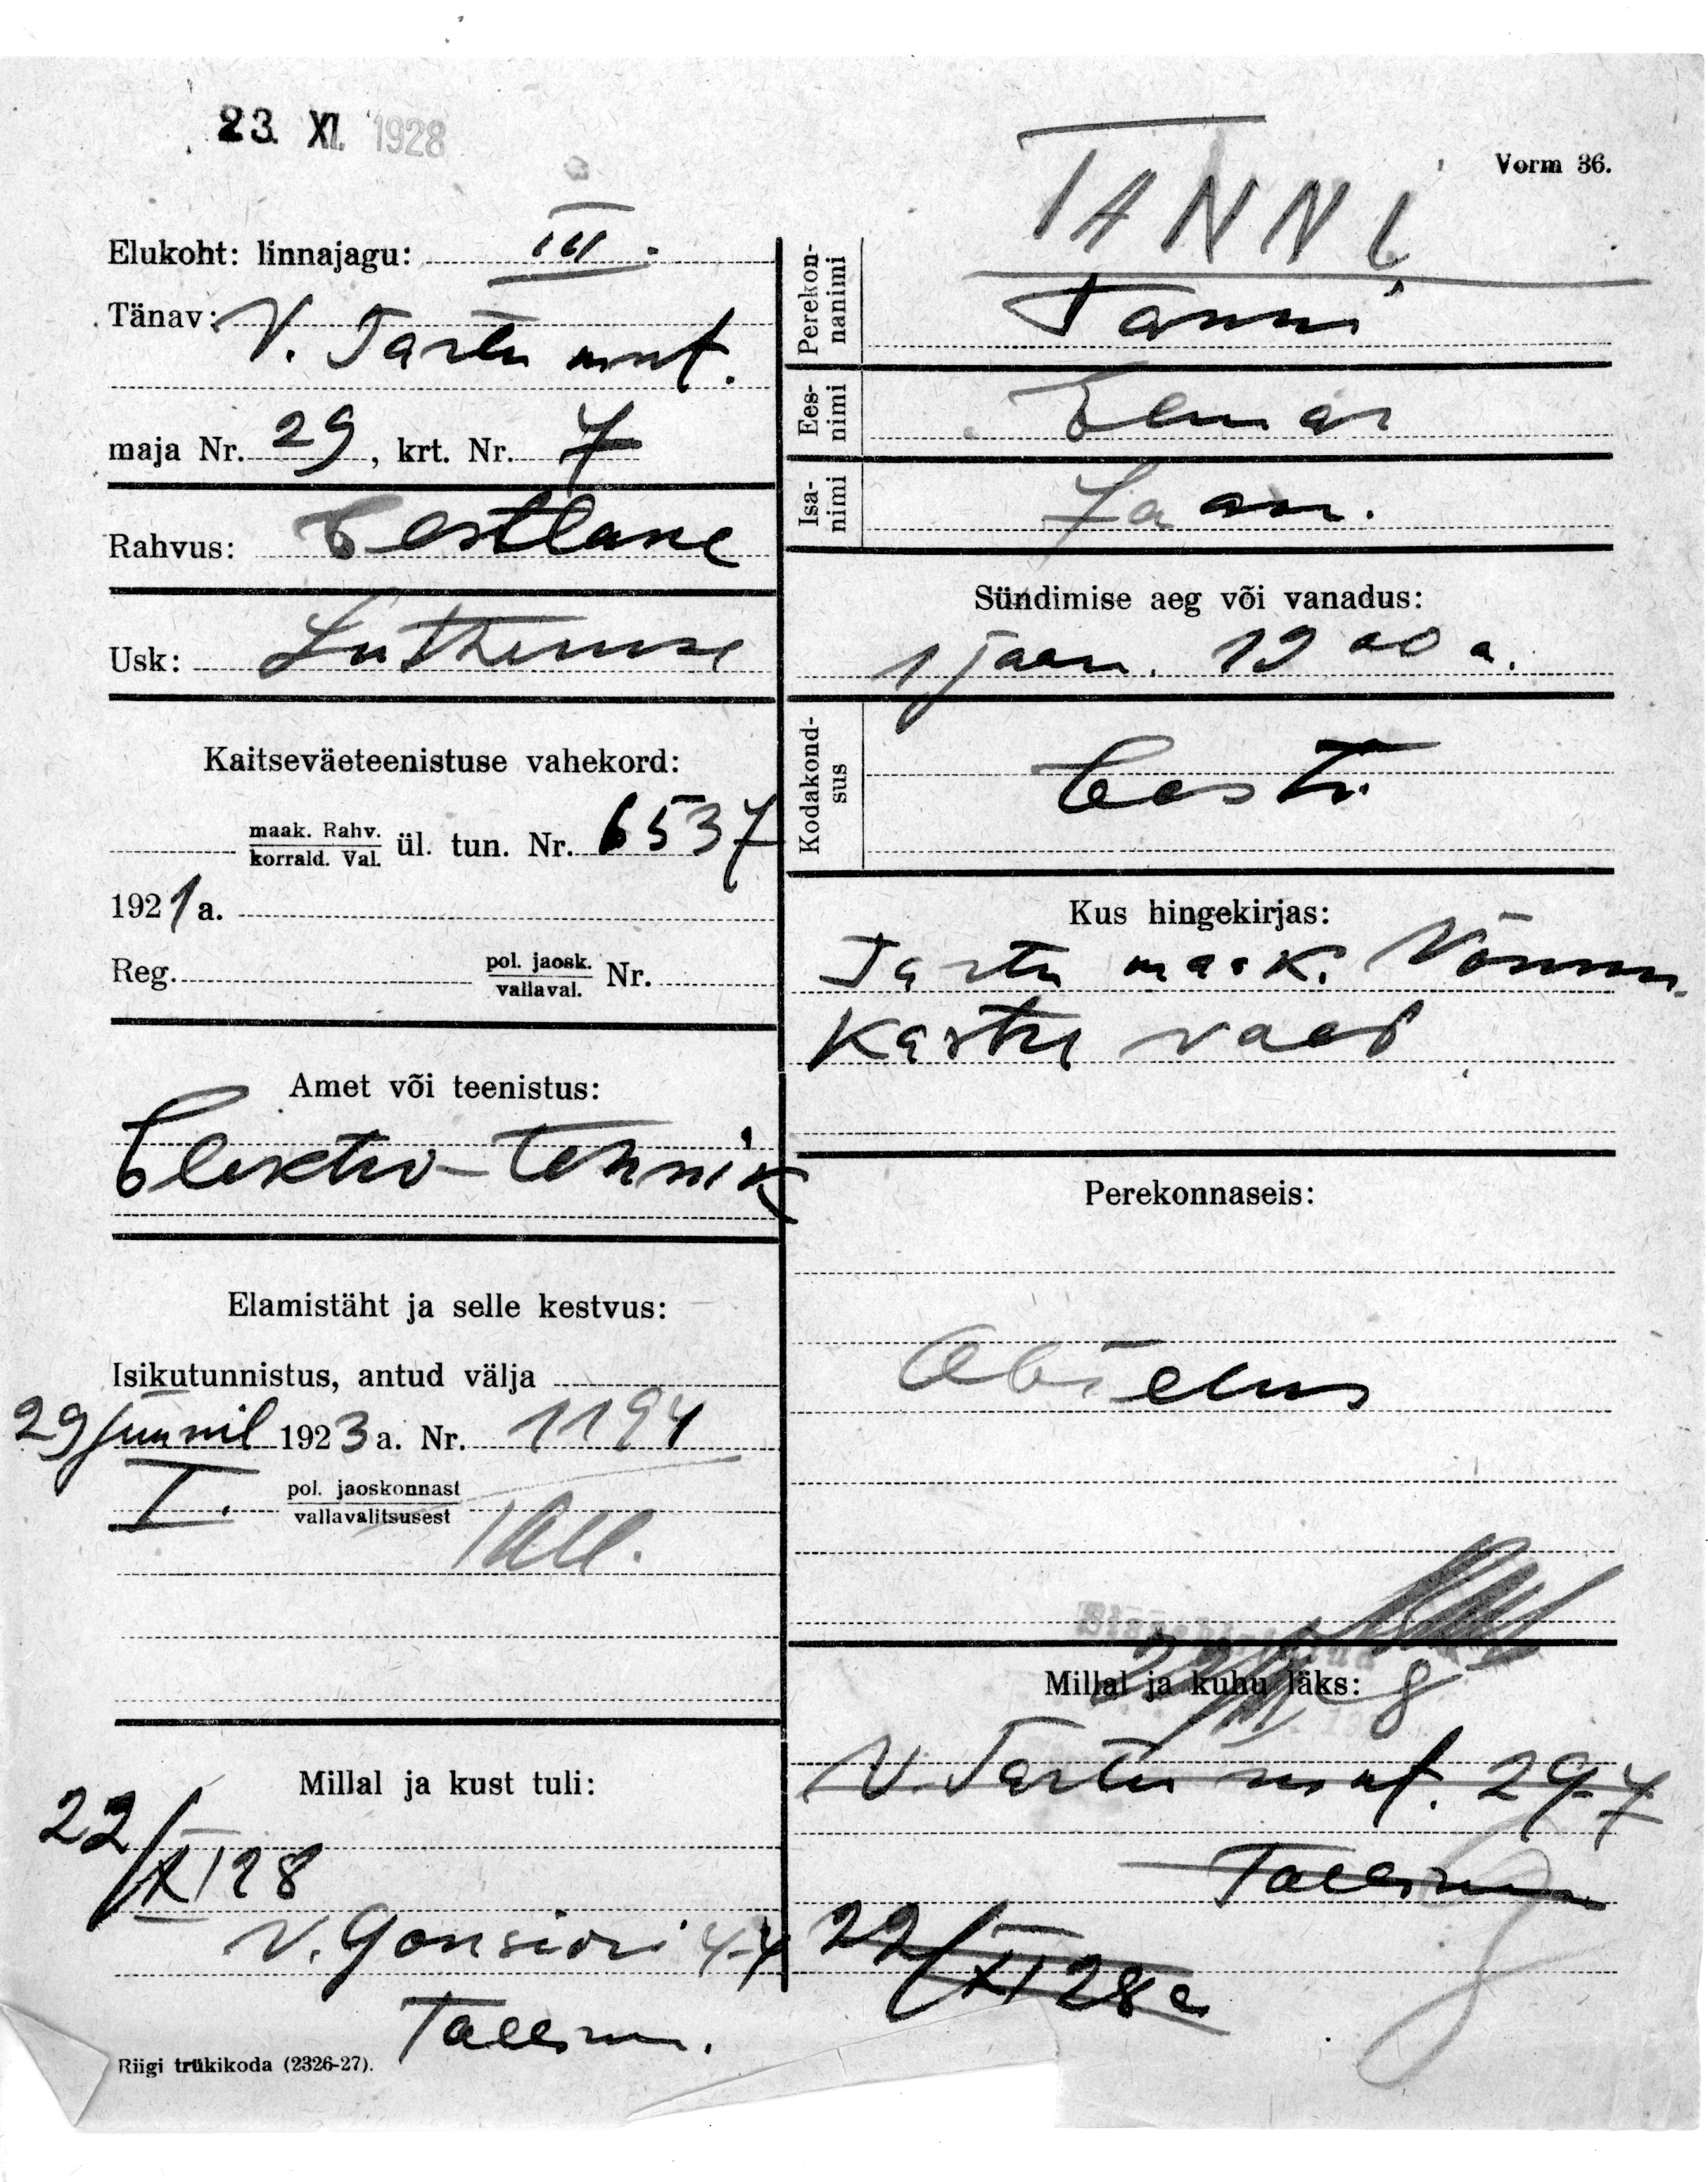 23. XI. 1928
Vorm 36.
TANNI
Elukoht: linnajagu: III.
Tänav: V. Tartu mnt.
maja Nr. 29, krt. Nr. 7
Rahvus: Eestlane
Usk: Lutheruse
Kaitseväeteenistuse vahekord:
maak. Rahv.
korrald. Val. ül. tun. Nr. 6537
1921 a.
Reg. pol. jaosk.
vallaval. Nr.
Amet või teenistus:
Elektro-tehnik
Elamistäht ja selle kestvus:
Isikutunnistus, antud välja
29 juunil 1923 a. Nr. 1194
I. pol. jaoskonnast
vallavalitsusest
Tall.
Millal ja kust tuli:
22/XI 28
V. Gonsiori 4-4
Tallinn.
Riigi trükikoda (2326-27).
Perekon-
nanimi
Tanni
Ees-
nimi
Isa-
nimi
Jaan.
Sündimise aeg või vanadus:
1 jaan. 1900 a.
Kodakond-
sus
Eesti
Kus hingekirjas:
Tartu maak. Võnnu
Kastre vald
Perekonnaseis:
Abielus
Millal ja kuhu läks:
V. Tartu mnt. 29-7
Tallinn
22/XI 28 a